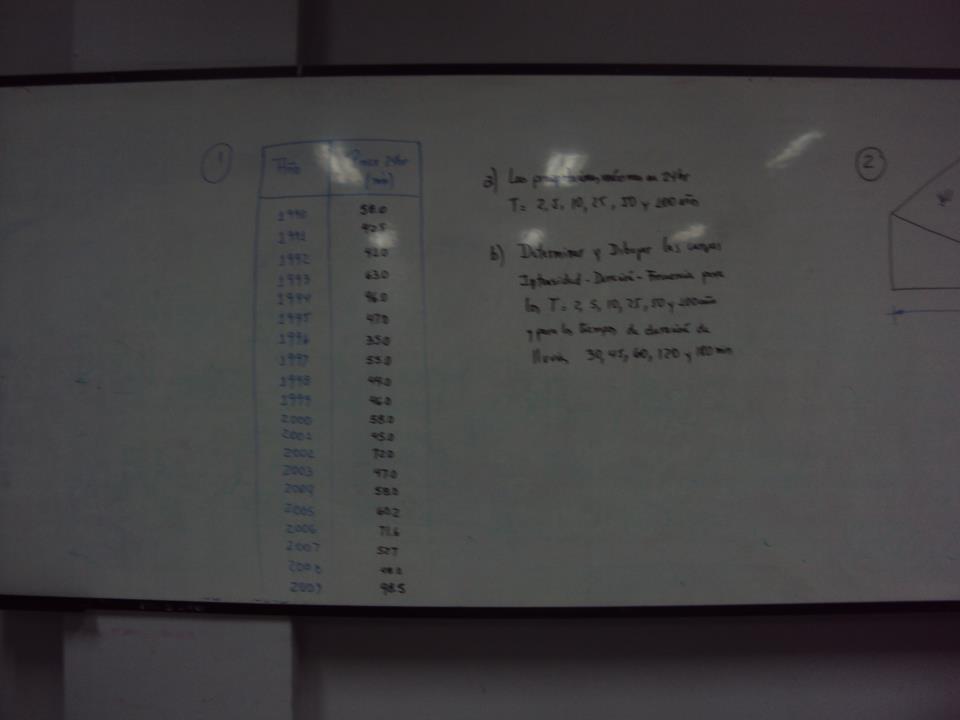 1
Año Pmax 24hr
(mm)
1990 58.0
1991 42.5
1992 42.0
1993 63.0
1994 46.0
1995 47.0
1996 35.0
1997 55.0
1998 44.0
1999 46.0
2000 58.0
2001 45.0
2002 72.0
2003 47.0
2004 58.0
2005 60.2
2006 71.6
2007 52.7
2008
2009 48.5
a) Las máximas en 24hr
T= 2, 5, 10, 25, 50 y 100 año
b) Determinar y Dibujar las curvas
Intensidad - Duración - Frecuencia para
los T= 2, 5, 10, 25, 50 y 100 año
y para los tiempos de duración de
lluvia 30, 45, 60, 120 y 180 min
2